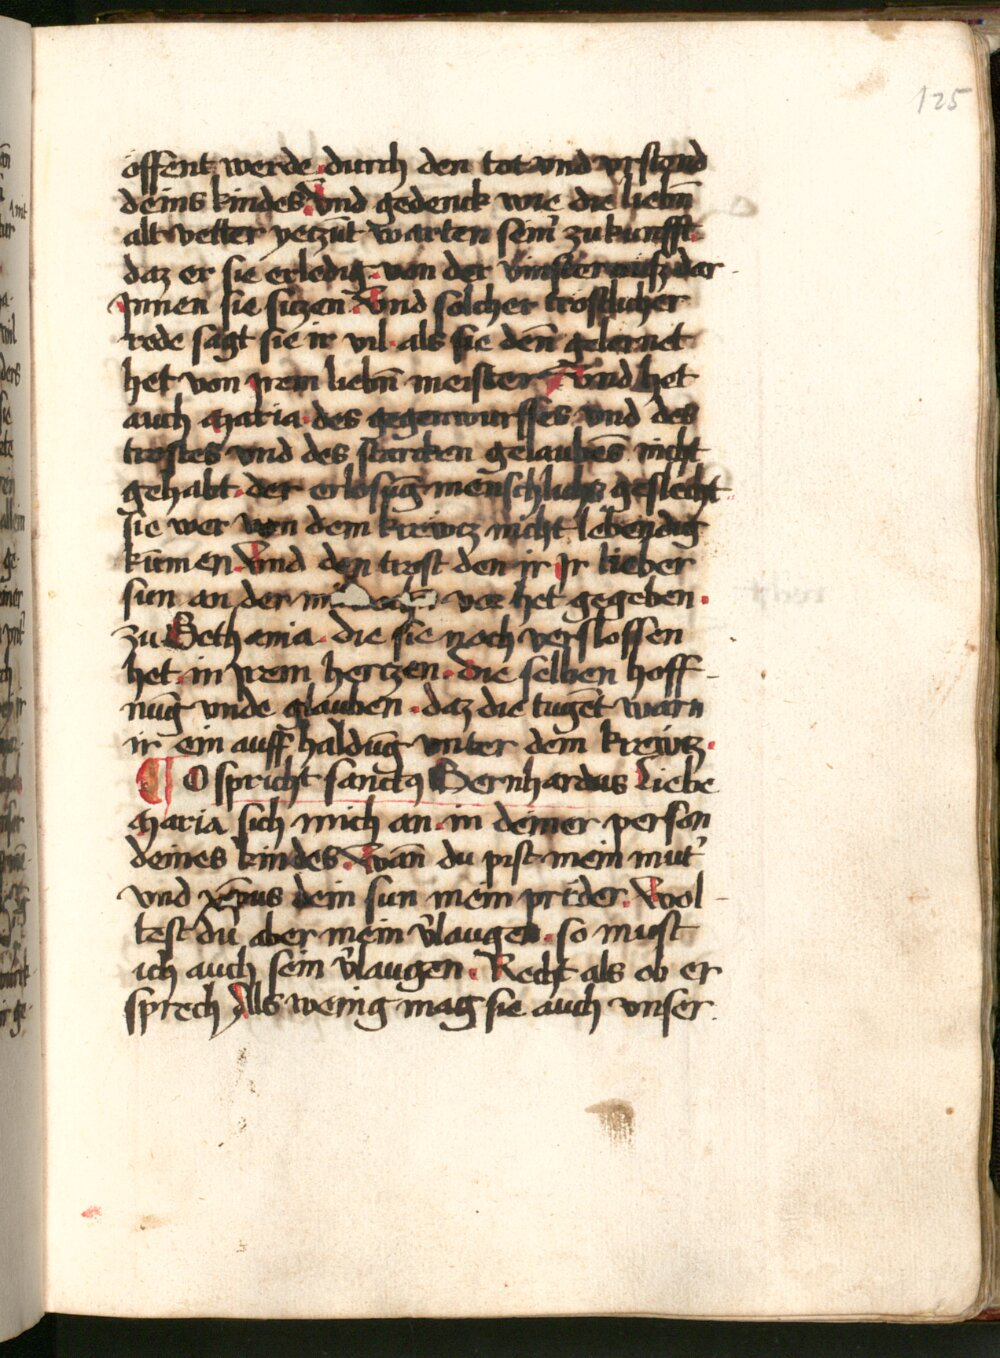 125
offent werde durch den tot vnd vrstend
deins kindes Vnd gedenck wie die liebn̄
alt vetter yeczūt warten sein̄ zukunfft
daz er sie erledig von der vinsternusz dar
Jnnen sie siczen Vnd solcher trostlicher
rede sagt sie ir vil als sie den̄ gelernet
het von irem liebn̄ meister Vnd het
auch Maria des gegenwurffes vnd des
trostes vnd des starcken gelaubēs nicht
gehabt der erlosūg menschlichs geslecht
sie wer von dem krewcz nicht lebendig
kumen Vnd den trost den ir Jr lieber
sun an der vor het gegeben
zu Bethania die sie noch verslossen
het in irem herczen die selben hoff
nūg vnde glauben daz die tugēt warn
ir ein auff haldūg vnter dem krewcz
O spricht sanctꝰ Bernhardus Liebe
Maria sich mich an in deiner person
deines kindes Wan̄ du pist mein mut̓
vnd xp̄us dein sun mein pruder Wol
test du aber mein v̓laugen so must
ich auch sein v̓laugen Recht als ob er
sprech Als wenig mag sie auch vnser